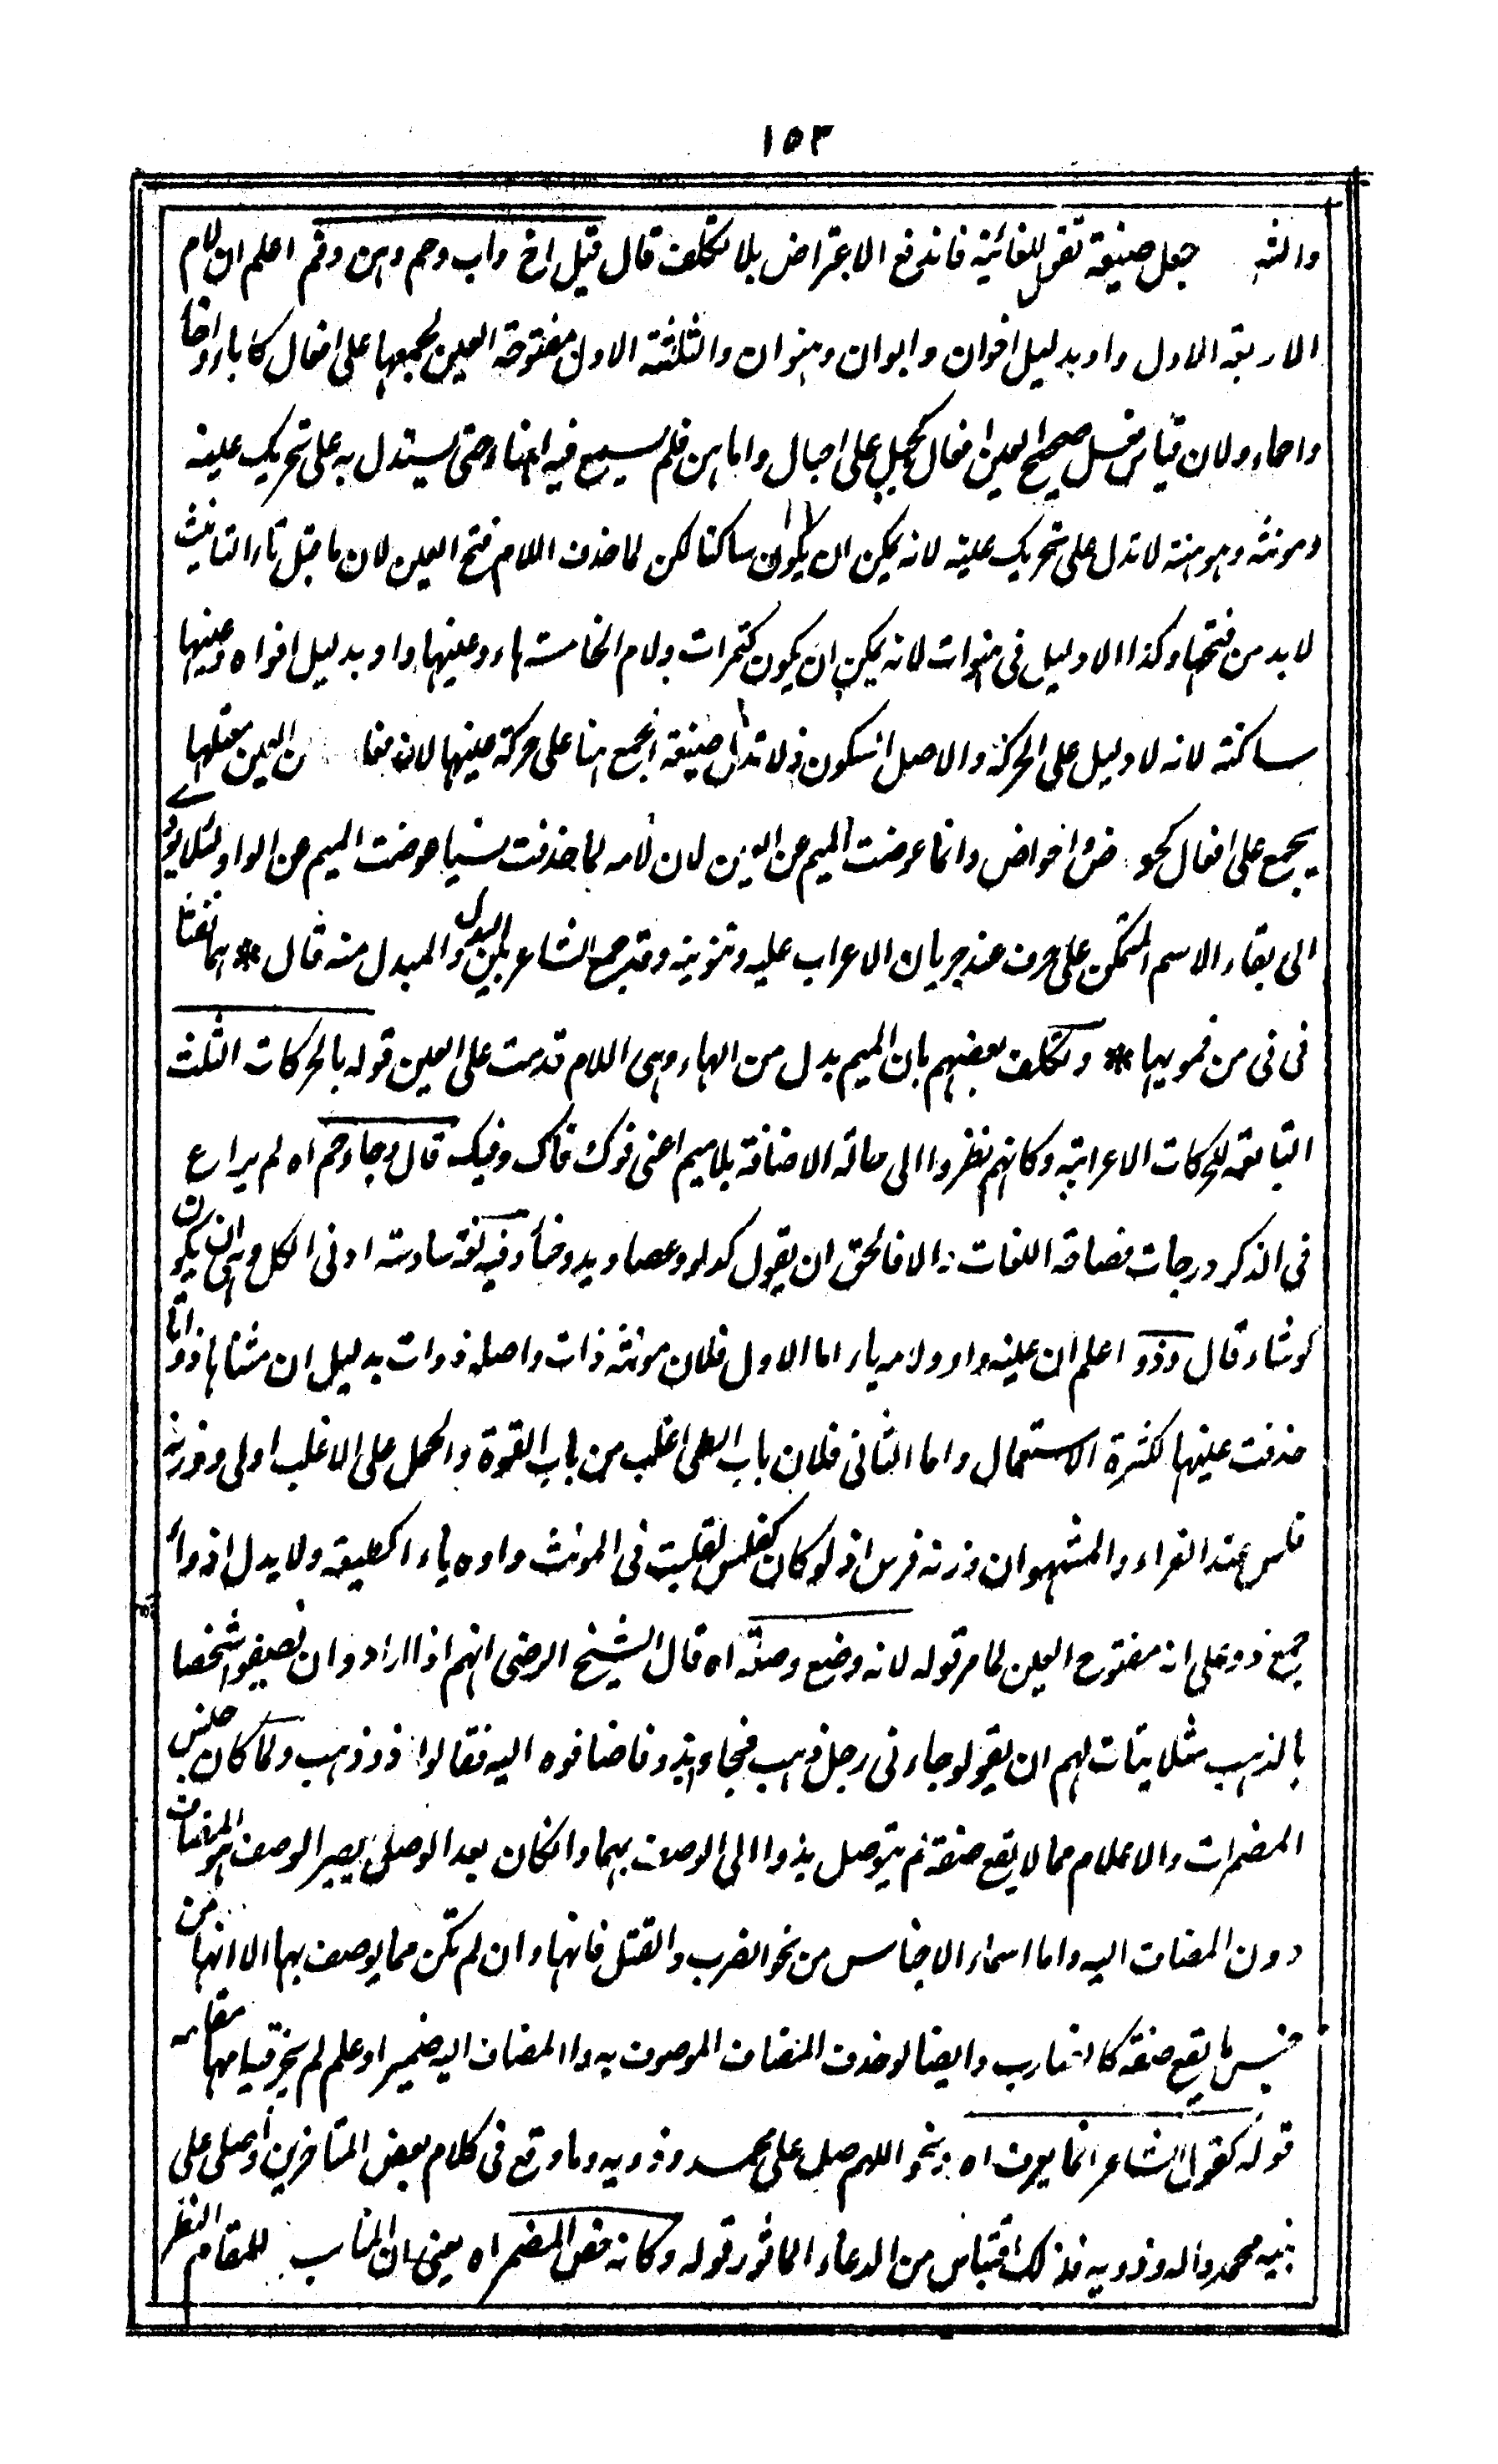 ١٥٣
والثه جعل صيغة تفر للغائية فاندفع الاعتراض بلا تكلف قال قيل اخ واب وحم وهن وفم اعلم ان لام
الاربعة الاول واو بدليل اخوان وابوان وهنوان والثلثة الاول مفتوحة العين لجمعها على افعال كاباء واخاء
واحماء ولان قياس فعل صحيح العين افعال كجبل على اجبال واما هن فلم يسمع فيه اهناء حتى يستدل به على تحريك عينه
ومونثه وهو هنة لا تدل على تحريك عينه لانه يمكن ان يكون ساكنا لكن لما حذف اللام فتح العين لان ما قبل تاء التانيث
لابد من فتحها وكذا الا دليل فى هنوات لانه يمكن ان يكون كتمرات ولام الخامسة هاء وعينها واو بدليل افواه وعينها
ساكنة لانه لا دليل على الحركة والاصل السكون ولا تدل صيغة الجمع هنا على حركة عينها لان العين معتلها
يجمع على افعال كحوض واحواض وانما عوضت الميم عن العين لان لامه لما حذفت نسيا عوضت الميم عن الواو لئلا يودى
الى بقاء الاسم المتمكن على حرف عند جريان الاعراب عليه وتنوينه وقد جمع الشاعر بين البدل والمبدل منه قال * هما نفثا
فى فى من فمويهما * وتكلف بعضهم بان الميم بدل من الهاء وهى اللام قدمت على العين قوله بالحركات الثلث
التابعة للحركات الاعرابية وكانهم نظروا الى حالة الاضافة بلا ميم اعنى فوك فاك وفيك قال وجاء حم اه لم يراع
فى الذكر درجات فصاحة اللغات والا فالحق ان يقول كدلو وعصا ويد وخبأ وفيه لغة سادسة ادنى الكل وهى ان يكون
كرشاء قال وذو اعلم ان عينه واو ولامه ياء اما الاول فلان مونثه ذات واصله ذوات بدليل ان مثناها ذواتا
حذفت عينها لكثرة الاستعمال واما الثانى فلان باب الطى اغلب من باب القوة والحمل على الاغلب اولى ووزنه
فلس عند الفراء والمشهور ان وزنه فرس اذ لو كان كفلس لقلبت فى المونث واوه ياء كطية ولا يدل اذواء
جمع ذو على انه مفتوح العين لما مر قوله لانه وضع وصلة اه قال الشيخ الرضى انهم اذا ارادوا ان يصفوا شخصا
بالذهب مثلا يتات لهم ان يقولوا جاءنى رجل ذهب فجاءو بذو فاضافوه اليه فقالوا ذو ذهب ولما كان جنس
المضمرات والاعلام مما لا يقع صفة لم يتوصل بذو الى الوصف بهما وانكان بعد الوصل يصير الوصف هو المضاف
دون المضاف اليه واما اسماء الاجناس من نحو الضرب والقتل فانها وان لم تكن مما يوصف بها الا انها من
جنس ما يقع صفة كالضارب وايضا لو حذف المضاف الموصوف به والمضاف اليه ضمير او علم لم يجز قيامها مقامه
قوله كقول الشاعر انما يعرف اه ونحو اللهم صل على محمد وذويه وما وقع فى كلام بعض المتاخرين وصلى على
نبيه محمد واله وذويه فذلك اقتباس من الدعاء الماثور قوله وكانه خص المضمر اه يعنى ان المناسب للمقام النظر